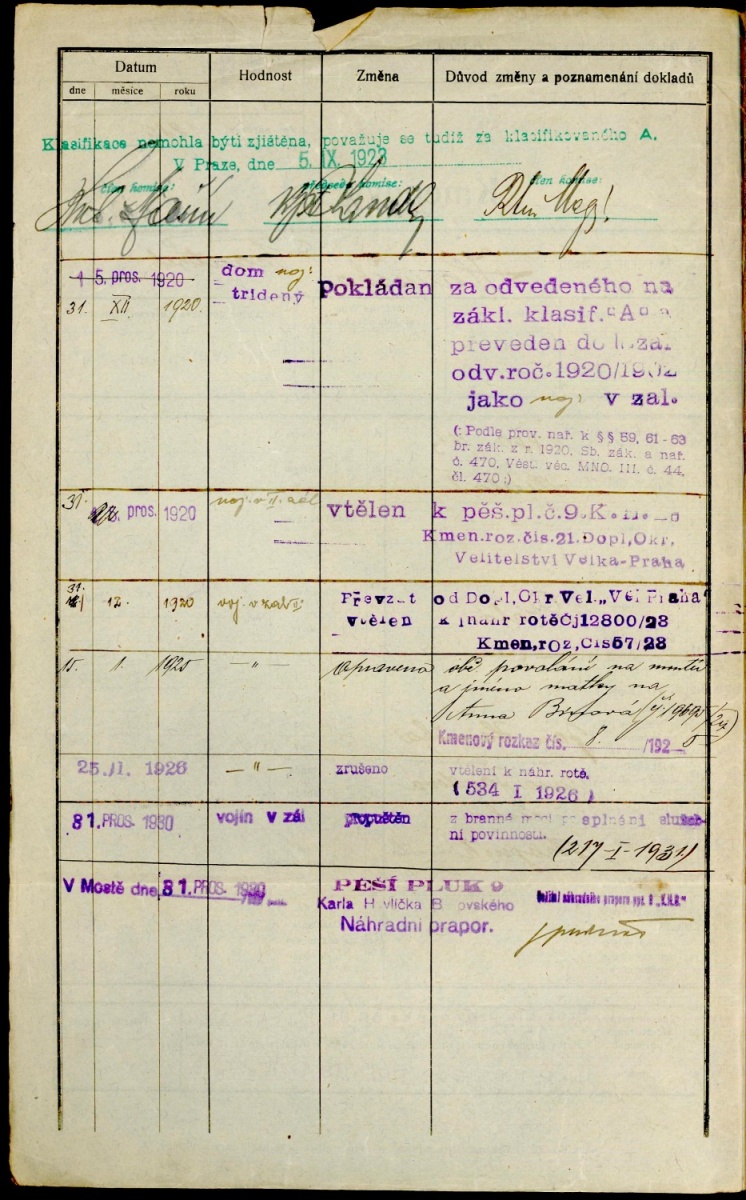 Datum
Hodnost
Změna
Důvod změny a poznamenání dokladů
dne
měsíce
roku
Klasifikace nemohla býti zjištěna, považuje se tudíž za klasifikovaného A.
V Praze, dne 5. IX. 1923
člen komise:
předseda komise:
člen komise:
15. pros. 1920
dom noj:
pokládán
za odvedeného na
31. XII 1920.
tridený
zákl. klasif. "A" a
preveden do
odv.roč.1920/1902
jako noj: v zal.
(: Podle prov. nař. k §§ 59, 61-63
br. zák. z r. 1920, Sb. zák. a nař.
č. 470, Věst. věc. MNO. III. č. 44,
čl. 470 :)
31.
pros. 1920
vtělen
k pěš.pl.č.9.K.H.
Kmen.roz.čís.21.Dopl,Okr,
Velitelství Velka-Praha
31.
12. 1920
voj. v zál
Převzat
od Dopl, Okr. Vel. „Vel Praha"
vtělen
k náhr rotě Čj 12800/23
Kmen, roz, Čís 57/23
15. 1. 1925
— " —
opraveno
obě povolání na
a jméno matky na
Anna
Kmenový rozkaz čís. 8. /192 5
25. I. 1926
— " —
zrušeno
vtělení k náhr. rotě.
(534 I 1926)
31. PROS. 1930
vojín v zál
propuštěn
z branné moci po splnění služeb-
ní povinnosti.
(217-I-1931)
V Mostě dne 31. PROS. 1930
PĚŠÍ PLUK 9
Karla Havlíčka Borovského
Náhradní prapor.
Velitel náhradního praporu